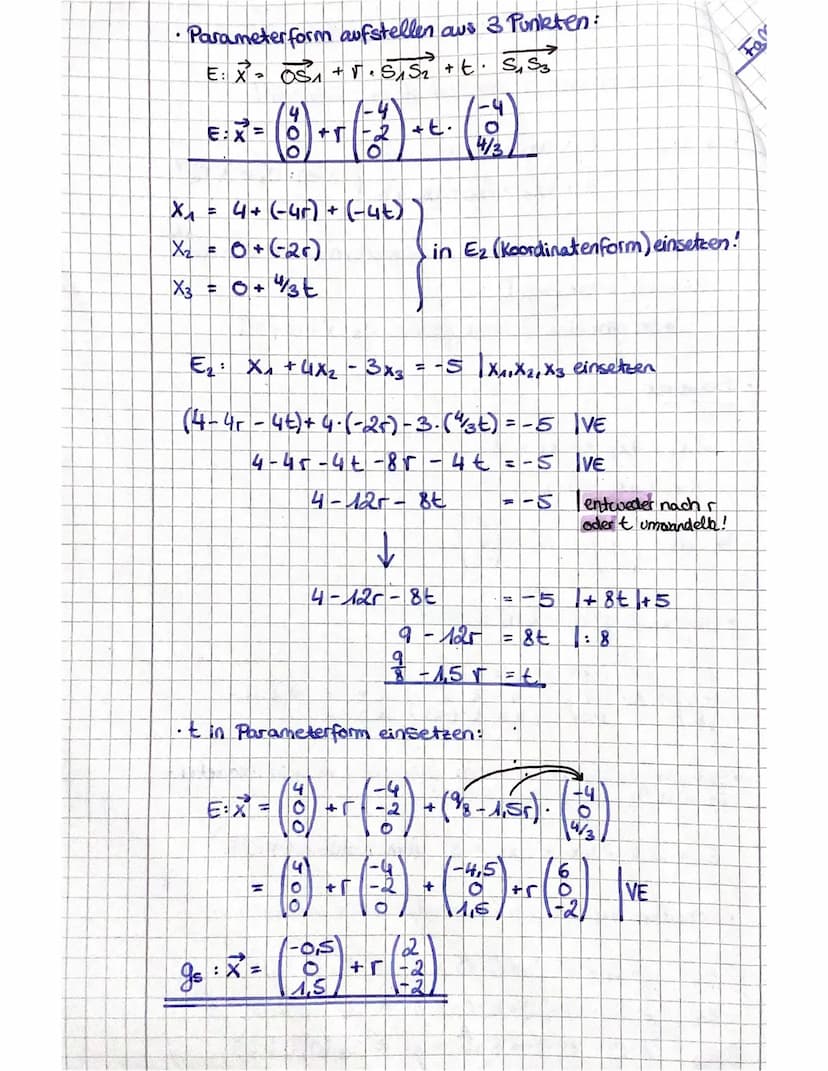 · Parameterform aufstellen aus 3 Punkten:
E: x⃗ = OS₁ + r · S₁S₂ + t · S₁S₃
E: x⃗ = (4 0 0) + r (-4 -2 0) + t · (-4 0 4/3)
x₁ = 4 + (-4r) + (-4t)
x₂ = 0 + (-2r) } in E₂ (Koordinatenform) einsetzen!
x₃ = 0 + 4/3t
E₂: x₁ + 4x₂ - 3x₃ = -5 | x₁, x₂, x₃ einsetzen
(4 - 4r - 4t) + 4·(-2r) - 3·(4/3t) = -5 | VE
4 - 4r - 4t - 8r - 4t = -5 | VE
4 - 12r - 8t = -5 | entweder nach r
oder t umwandeln!
↓
4 - 12r - 8t = -5 | + 8t | + 5
9 - 12r = 8t | : 8
9/8 - 1,5 r = t
· t in Parameterform einsetzen:
E: x⃗ = (4 0 0) + r (-4 -2 0) + (9/8 - 1,5r) · (-4 0 4/3)
= (4 0 0) + r (-4 -2 0) + (-4,5 0 1,5) + r (6 0 -2) | VE
g₅ : x⃗ = (-0,5 0 1,5) + r (2 -2 -2)